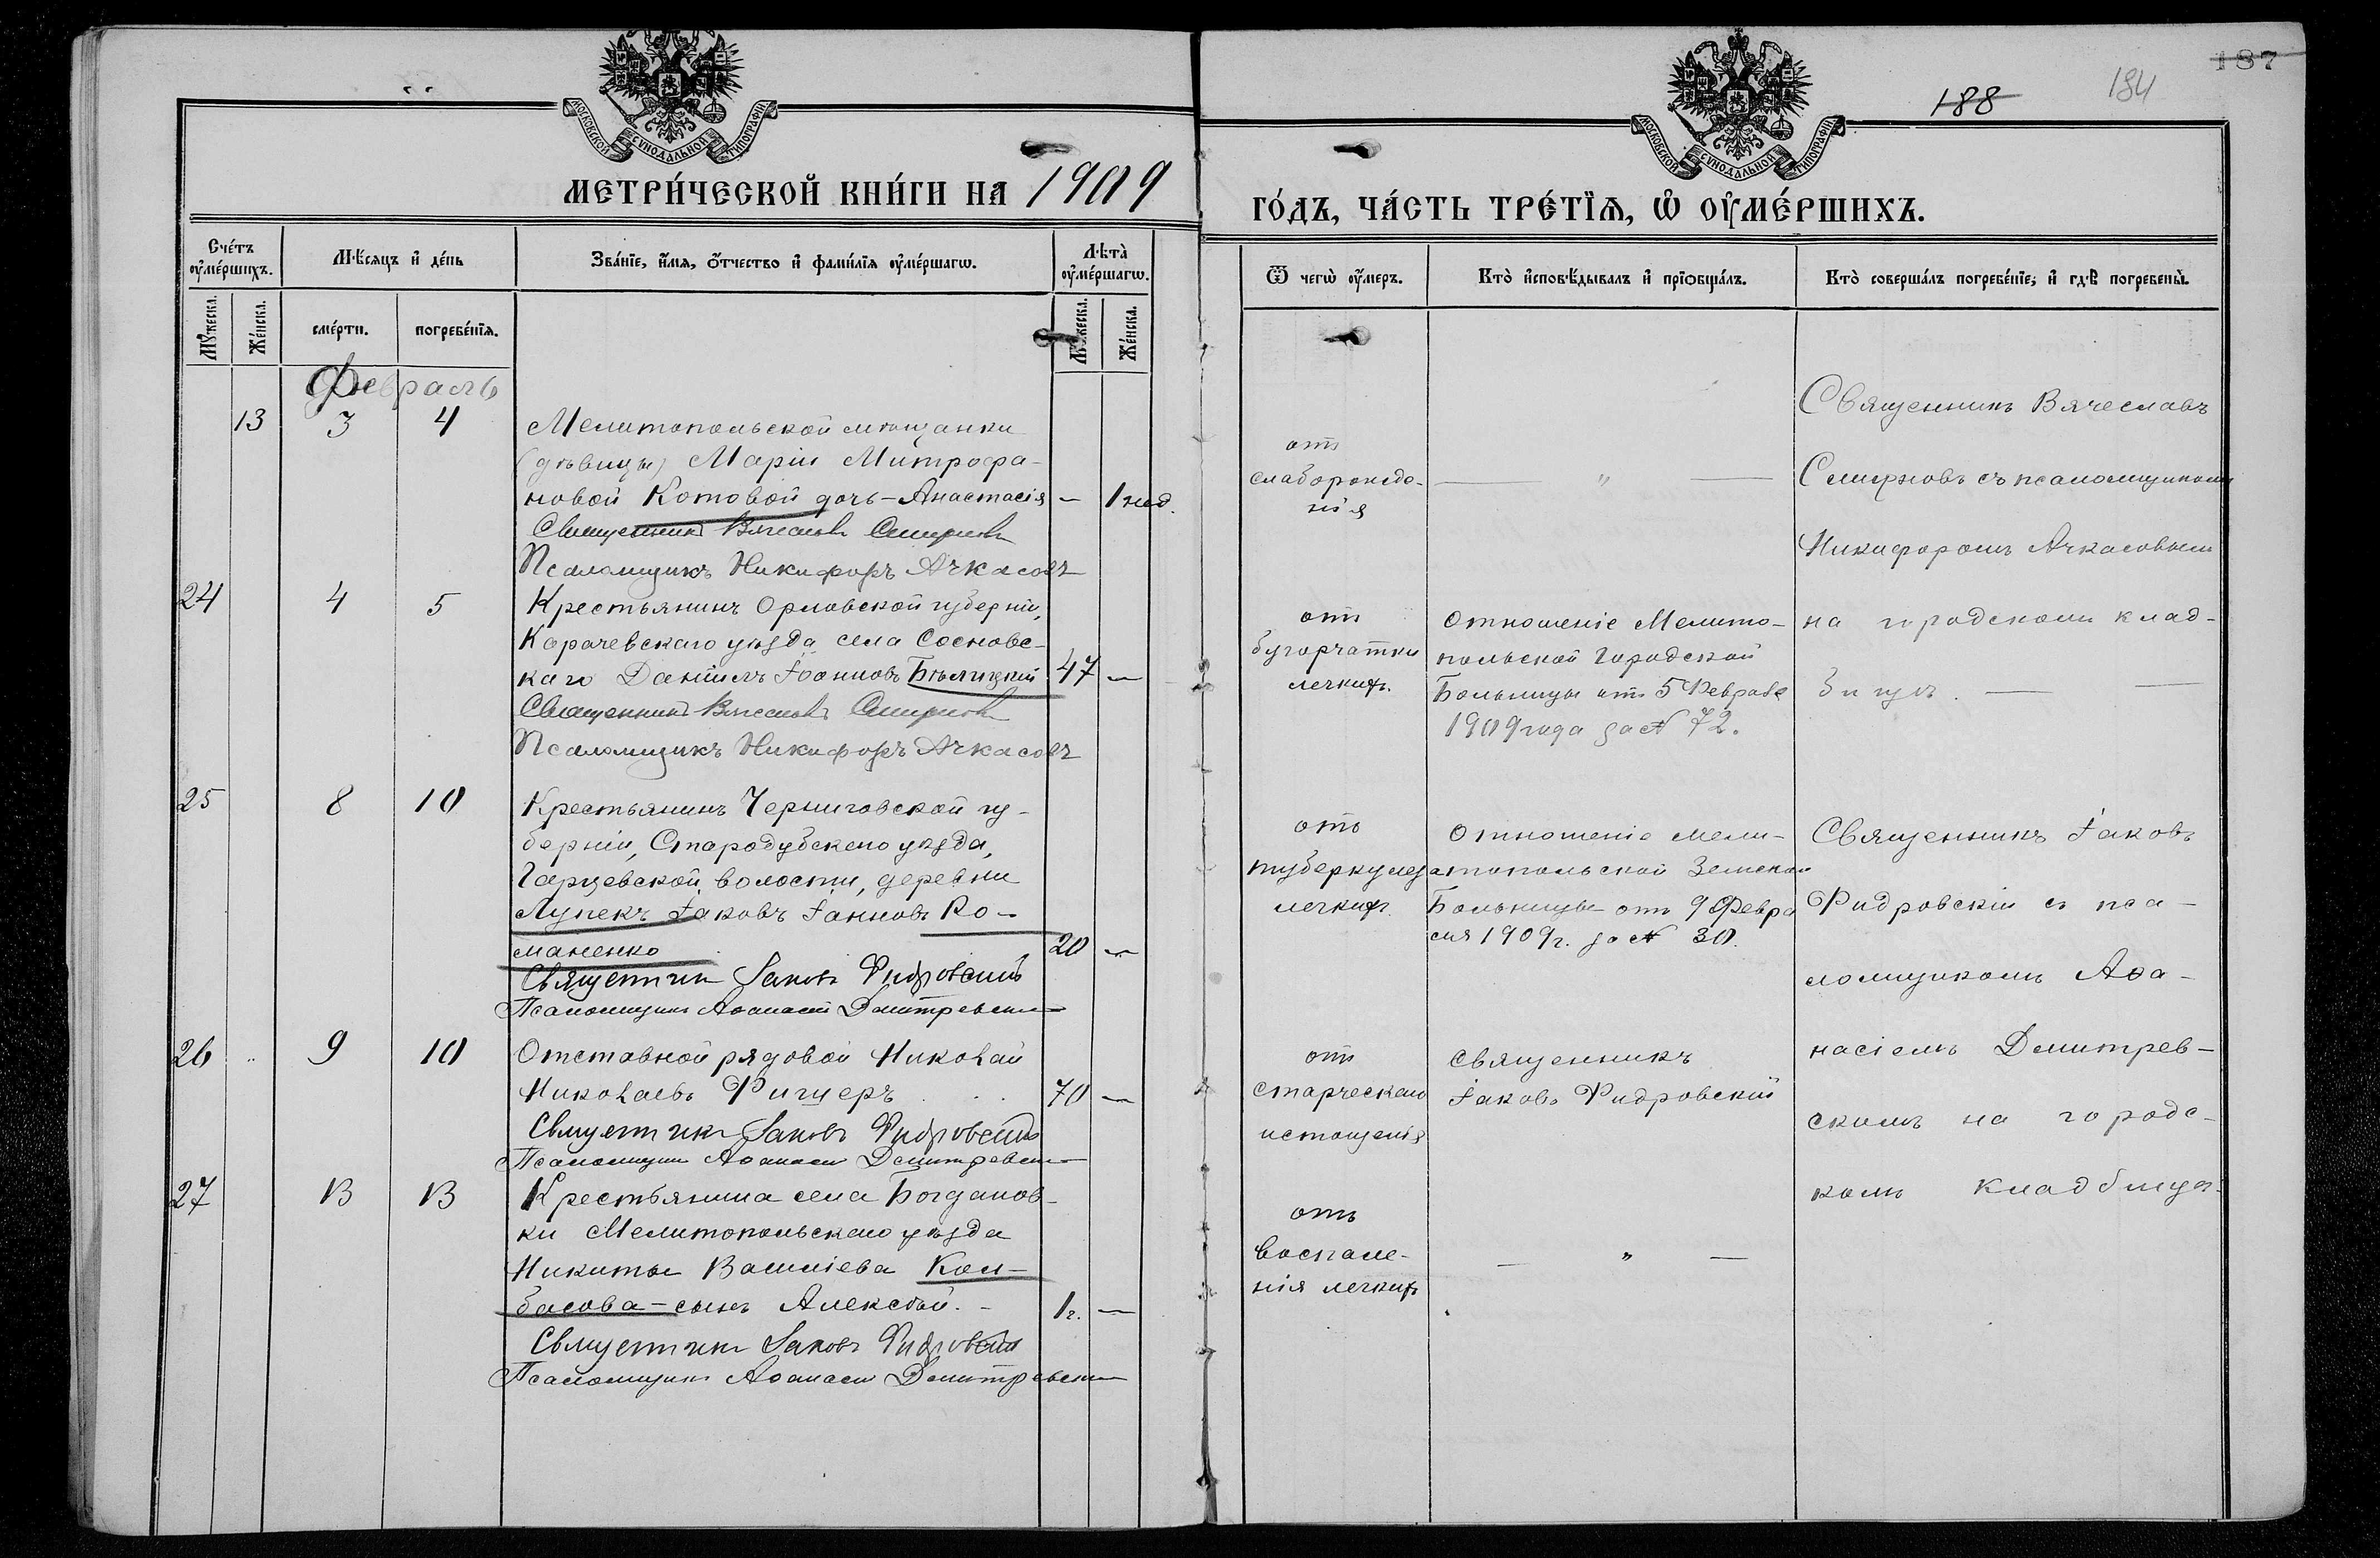 187
188
184
МОСКОВСКОЙ СѴНОДАЛЬНОЙ ТИПОГРАФІИ
МОСКОВСКОЙ СѴНОДАЛЬНОЙ ТИПОГРАФІИ
МЕТРИ́ЧЕСКОЙ КНИ́ГИ НА 1909
ГО́ДЪ, ЧА́СТЬ ТРЕ́ТЇѦ, Ѡ҆ ОУ҆МЕ́РШИХЪ.
Сче́тъ оу҆ме́ршихъ.
Мѣ́сяцъ и҆ де́нь
Зва́нїе, и҆́мя, ѻ҆́тчество и҆ фами́лїя оу҆ме́ршагѡ.
Лѣта̀ оу҆ме́ршагѡ.
Ѿ чегѡ̀ оу҆́меръ.
Кто̀ и҆сповѣ́дывалъ и҆ прїѻбща́лъ.
Кто̀ соверша́лъ погребе́нїе, и҆ гдѣ̀ погребены̀.
Мꙋ́жеска.
Же́нска.
сме́рти.
погребе́нїя.
Мꙋ́жеска.
Же́нска.
Февраль
13 3 4
Мелитопольской мѣщанки
(дѣвицы) Маріи Митрофа-
новой Котовой дочь – Анастасія – 1 нед.
Священникъ Вячеславъ Смирновъ
Псаломщикъ Никифоръ Ачкасовъ
отъ
слаборожде-
нія
— " —
Священникъ Вячеславъ
Смирновъ съ псаломщикомъ
Никифоромъ Ачкасовымъ
на городскомъ клад-
бищѣ. — —
24 4 5
Крестьянинъ Орловской губерніи,
Карачевскаго уѣзда села Сосновс-
каго Даніилъ Іоанновъ Бѣлицкій 47 —
Священникъ Вячеславъ Смирновъ
Псаломщикъ Никифоръ Ачкасовъ
отъ
бугорчатки
легкихъ.
Отношеніе Мелито-
польской Городской
Больницы отъ 5 Февраля
1909 года за № 72.
25 8 10
Крестьянинъ Черниговской гу-
берніи, Стародубскаго уѣзда,
волости, деревни
Іаковъ Ро-
маненко 20 —
Священникъ Іаковъ Фидровскій
Псаломщикъ Аѳанасій Димитревскій
отъ
туберкулеза
легкихъ.
Отношеніе Мели-
топольской Земской
Больницы отъ 9 Февра
ля 1909 г. за № 30.
Священникъ Іаковъ
Фидровскій съ пса-
ломщикомъ Аѳа-
насіемъ Димитрев-
скимъ на городс-
комъ кладбищѣ.
26 9 10
Отставной рядовой Николай
Николаевъ 70 —
Священникъ Іаковъ Фидровскій
Псаломщикъ Аѳанасій Димитревскій
отъ
старческаго
истощенія
Священникъ
Іаковъ Фидровскій
27 13 13
Крестьянина села Богданов-
ки Мелитопольскаго уѣзда
Никиты Василіева Кол-
басова – сынъ Алексѣй. – 1 г. —
Священникъ Іаковъ Фидровскій
Псаломщикъ Аѳанасій Димитревскій
отъ
воспале-
нія легкихъ
— " —